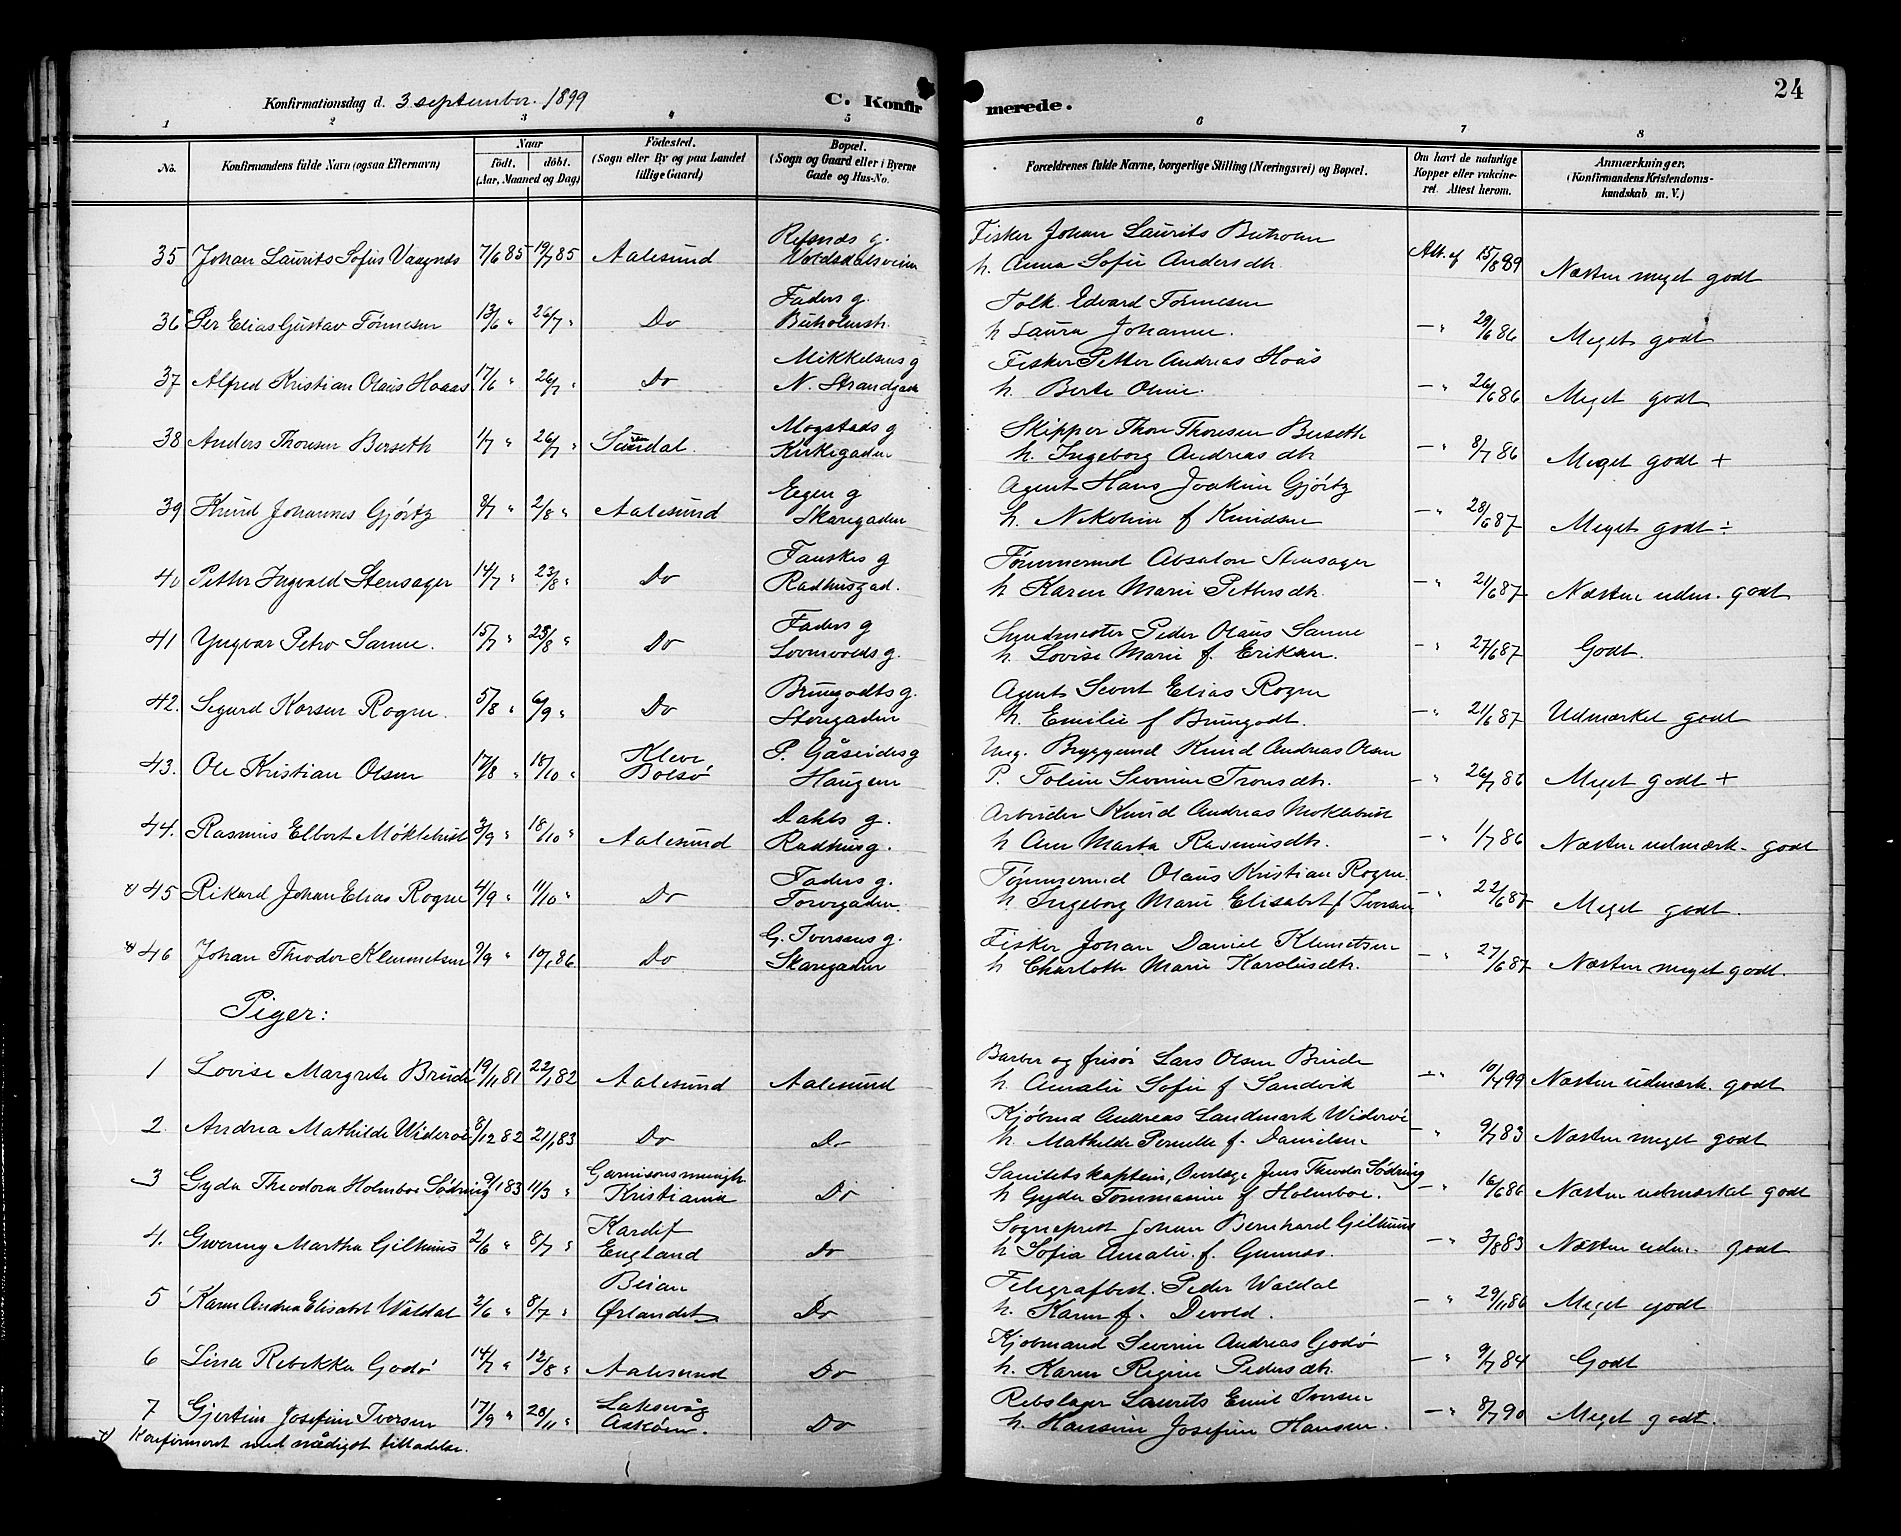 24
Konfirmationsdag d. 3 september 1899 C. Konfirmerede.
1 2 3 4 5 6 7 8
No. Konfirmandens fulde Navn (ogsaa Efternavn) Naar født. døbt. (Aar, Maaned og Dag) Fødested. (Sogn eller By og paa Landet tillige Gaard) Bopæl. (Sogn og Gaard eller i Byerne Gade og Hus-No. Forældrenes fulde Navne, borgerlige Stilling (Næringsvei) og Bopæl. Om havt de naturlige Kopper eller vakcineret. Attest herom. Anmærkninger. (Konfirmandens Kristendomskundskab m. V.)
Refsnæs g. Fisker Johan Laurits Buholm
35 Johan Laurits Sofus Vaagnæs 7/6 85 19/7 85 Aalesund Voldsdalsveien h. Anna Sofie Andersdtr. Att. af 15/8 89 Næsten meget godt
Faders g. Folk. Edvard Tønnesen
36 Per Elias Gustav Tønnesen 13/6 " 26/7 " Do Buholmstr. h Laura Johanne. — " 29/6 86 Meget godt
Mikkelsens g Fisker Petter Andreas Hoås
37 Alfred Kristian Olaus Hoaas 17/6 " 26/7 " Do N. Strandgade h. Berte Oline. — " 26/6 86 Meget godt
Mogstads g Skipper Thore Thoresen Berseth
38 Anders Thoresen Berseth 1/7 " 26/7 " Surendal. Kirkegaden h. Ingeborg Andreasdtr — " 8/7 86 Meget godt +
Eegen g Agent Hans Joakim Gjørtz
39 Knud Johannes Gjørtz 8/7 " 2/8 " Aalesund Skaregaden h. Nikoline f Knudsen — " 28/6 87 Meget godt ÷
Fauskes g Tømmermd Absalon Stensager
40 Petter Ingvald Stensager 14/7 " 23/8 " Do Raadhusgad. h Karen Marie Pettersdtr. — " 21/6 87 Næsten udm. godt
Faders g Smedmester Peder Olaus Sanne
41 Yngvar Petro Sanne. 15/7 " 23/8 " Do Lovnvolds g. h. Lovise Marie f. Eriksen. — " 27/6 87 Godt.
Brungodts g. Agent Severt Elias Rogne
42. Sigurd Korsen Rogne. 5/8 " 6/9 " Do Storegaden h. Emilie f Brungodt. — " 21/6 87 Udmærket godt
Kleve P. Gåseides g Ung. Bryggemd Knud Andreas Olsen
43. Ole Kristian Olsen 17/8 " 18/10 " Bolsø Haugen P. Toline Sevrine Tronsdtr. — " 26/7 86 Meget godt +
Dahls g. Arbeider Knud Andreas Moklebust
44. Rasmus Elbert Møklebust 2/9 " 18/10 " Aalesund Raadhusg. h Ane Marta Rasmusdtr. — " 1/7 86 Næsten udmærk. godt
Faders g. Tømmermd Olaus Kristian Rogne
x) 45 Rikard Johan Elias Rogne 4/9 " 11/10 " Do Torvegaden. h. Ingeborg Marie Elisabet f Iversen — " 22/6 87 Meget godt.
G. Iversens g. Fisker Johan Daniel Klemetsen
x) 46 Johan Theodor Klemmetsen 9/9 " 10/1 86 Do Skaregaden h Charlotte Marie Karolusdtr. — " 27/6 87 Næsten meget godt.
Piger:
Barber og frisør Lars Olsen Brude
1 Lovise Margrete Brude 19/11 81 22/1 82 Aalesund Aalesund h. Amalie Sofie f Sandvik — " 10/7 99 Næsten udmærk. godt
Kjøbmd Andreas Landmark Widerøe
2. Andrea Mathilde Widerøe 8/12 82 21/1 83 Do Do h. Mathilde Pernille f. Danielsen — " 9/7 83 Næsten meget godt
Garnisonsmenigh. Sanitetskaptein, Overlæge Jens Theodor Södring
3 Gyda Theodora Holmboe Södring 9/1 83 11/3 " Kristiania Do h Gyda Tommasine f Holmboe. — " 16/6 86 Næsten udmærket godt
Kardif Sogneprest Johan Bernhard Gilhuus
4. Gwenny Martha Gilhuus 2/6 " 8/7 " England Do h Sofia Amalie. f. Gunnæs. — " 3/8 83 Næsten udm. godt
Beian Telegrafbest. Peder Waldal
5 Karen Andrea Elisabet Waldal 2/6 " 8/7 " Ørlandet Do h. Karen f. Devold. — " 29/1 86 Meget godt
Kjøbmand Severin Andreas Godø
6 Lina Rebekka Godø 14/7 " 12/8 " Aalesund Do h. Karen Regine Pedersdtr. — " 9/7 84 Godt
Laksevåg Rebslager Laurits Emil Iversen
7 Gjertine Josefine Iversen 17/9 " 28/11 " Askøen. Do h. Hansine Josefine Hansen. — " 8/7 90 Meget godt.
x) Konfirmeret med nådigst tilladelse.